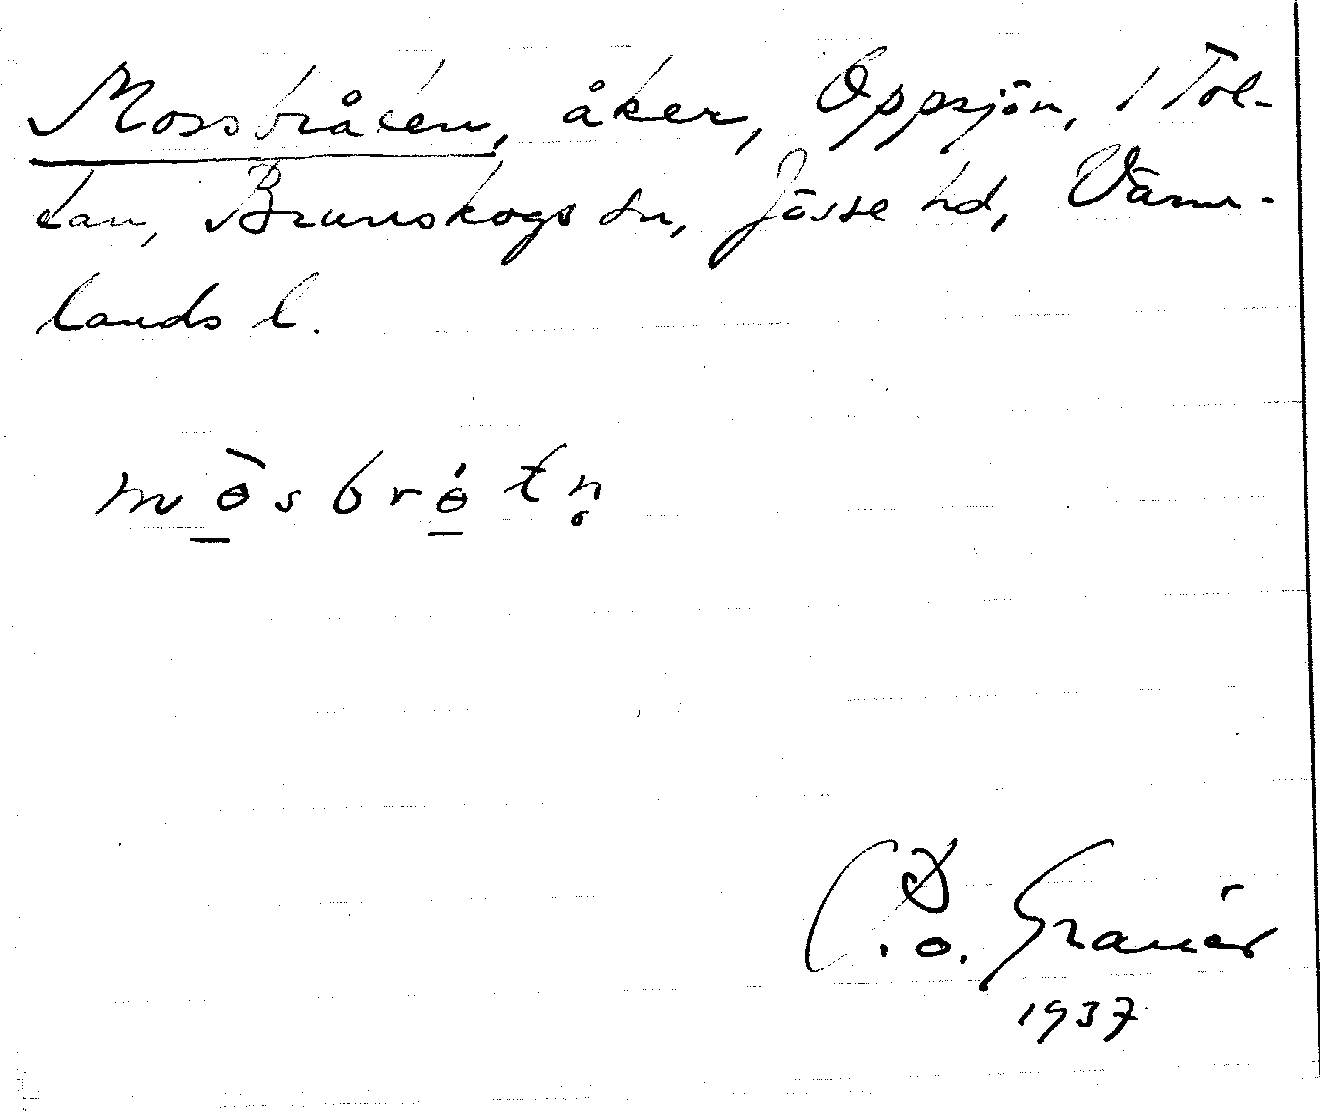 Mossbråten, åker, Oppsjön, 1 Tol-
tan, Brunskogs sn, Jösse hd, Värm-
lands l.
mɵ̀sbrɵ́tn̥
C. O. Granér
1937